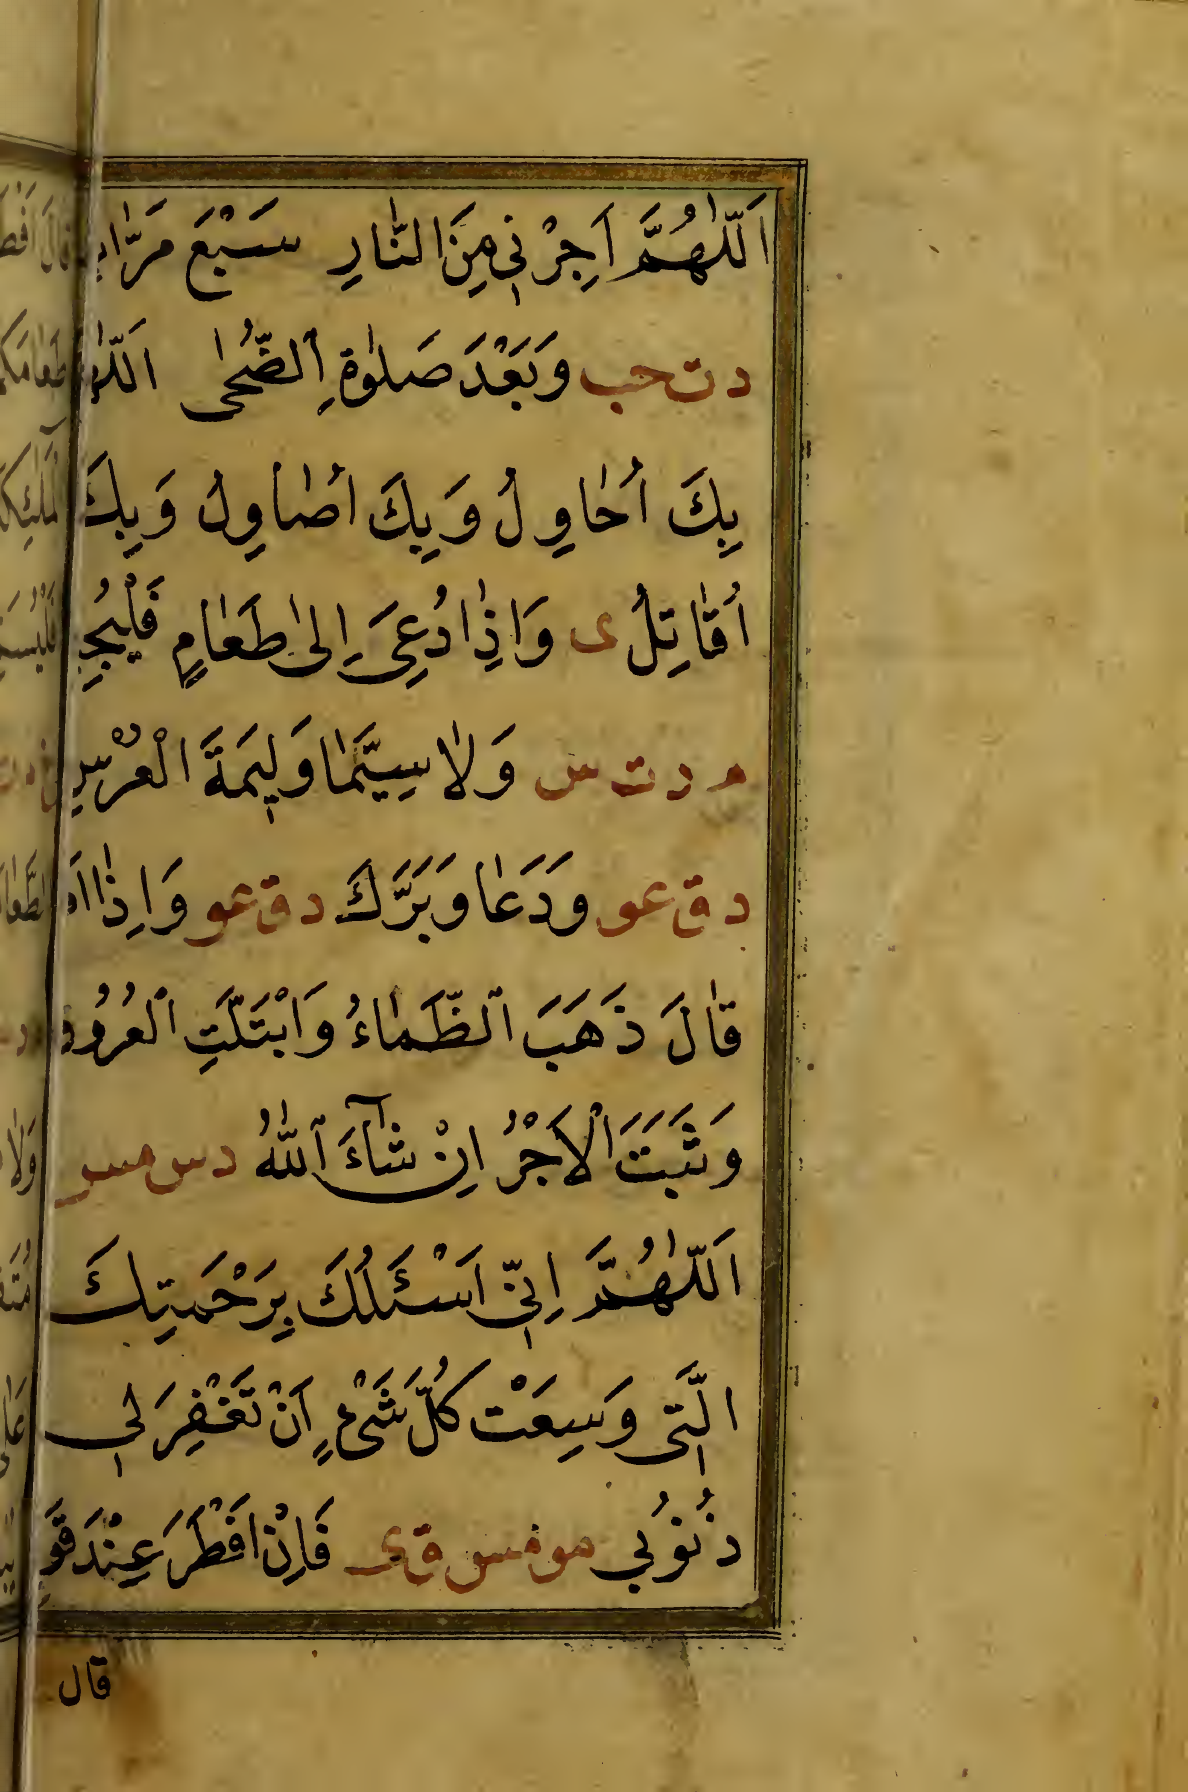 اَللّٰهُمَّ اَجِرْنِي مِنَ النَّارِ سَبْعَ مَرَّاتٍ
د ت حب وَبَعْدَ صَلٰوةِ الضُّحٰى اَللّٰهُمَّ
بِكَ اُحَاوِلُ وَبِكَ اُصَاوِلُ وَبِكَ
اُقَاتِلُ ى وَاِذَا دُعِيَ اِلٰى طَعَامٍ فَلْيُجِبْ
م د ت س وَلَا سِيَّمَا وَلِيمَةَ الْعُرْسِ
د ق عو وَدَعَا وَبَرَّكَ د ق عو وَاِذَا
قَالَ ذَهَبَ الظَّمَاءُ وَابْتَلَّتِ الْعُرُوقُ
وَثَبَتَ الْاَجْرُ اِنْ شَآءَ اللّٰهُ د س مس
اَللّٰهُمَّ اِنِّي اَسْئَلُكَ بِرَحْمَتِكَ
الَّتِي وَسِعَتْ كُلَّ شَيْءٍ اَنْ تَغْفِرَ لِي
ذُنُوبِي مو مس ق ى فَاِنْ اَفْطَرَ عِنْدَ قَوْمٍ
قال